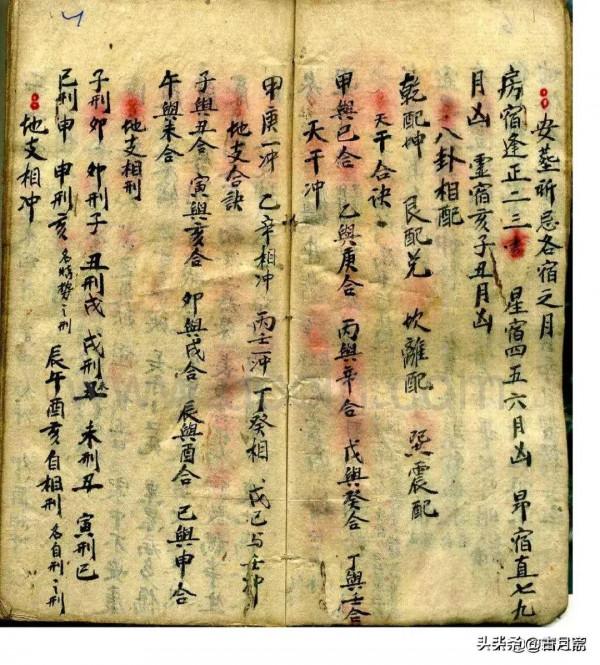 安葬所忌各宿之月
房宿逢正二三 星宿四五六月凶 昴宿直七九
月凶 虚宿亥子丑月凶
八卦相配
乾配坤 艮配兑 坎離配 巽震配
天干合訣
甲與己合 乙與庚合 丙與辛合 戊與癸合 丁與壬合
天干冲
甲庚一冲 乙辛相冲 丙壬冲 丁癸相 戊己与壬冲
地支合訣
子與丑合 寅與亥合 卯與戌合 辰與酉合 巳與申合
午與未合
地支相刑
子刑卯 卯刑子 丑刑戌 戌刑丑 未刑丑 寅刑巳
巳刑申 申刑亥 名恃勢之刑 辰午酉亥自相刑 名自刑之刑
地支相冲
头条 @古月斋